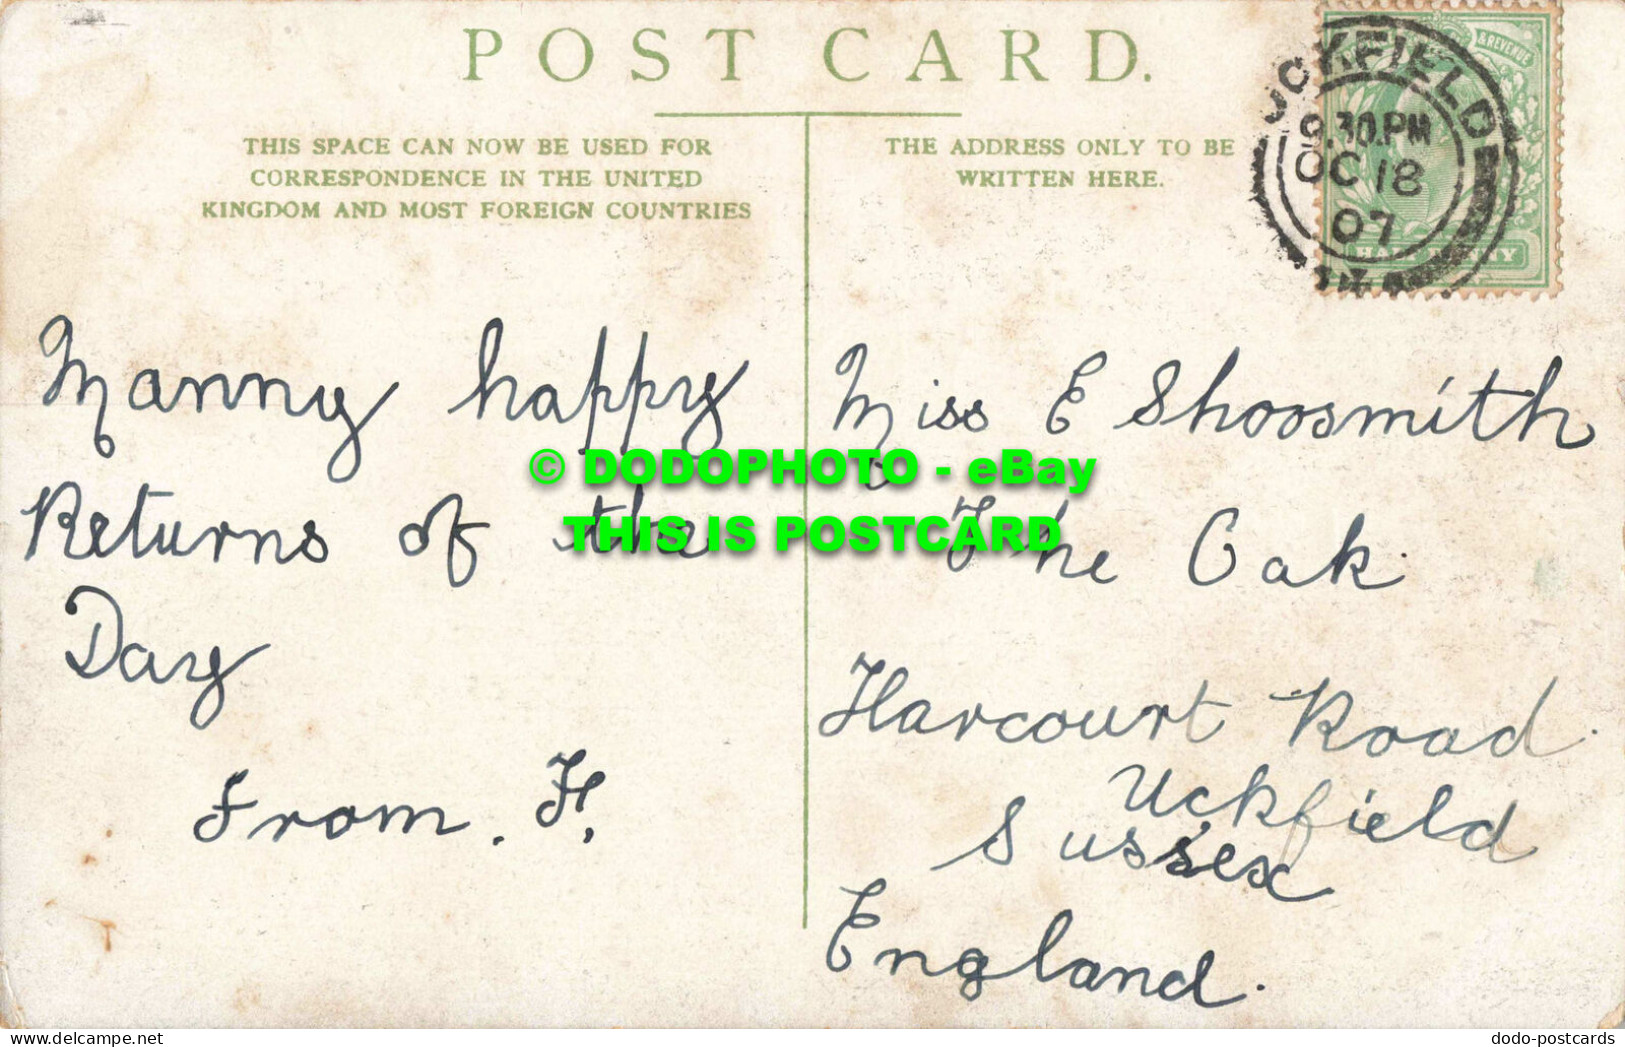 POST CARD.
THIS SPACE CAN NOW BE USED FOR
CORRESPONDENCE IN THE UNITED
KINGDOM AND MOST FOREIGN COUNTRIES
THE ADDRESS ONLY TO BE
WRITTEN HERE.
& REVENUE
UCKFIELD
9.30.PM
OC 18
07
Manny happy
Returns of the
Day
From. H.
Miss E Shoosmith
The Oak.
Harcourt Road.
Uckfield
Sussex
England.
© DODOPHOTO - eBay
THIS IS POSTCARD
dodo-postcards